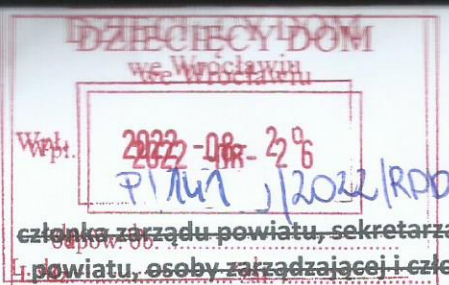 DZIECIĘCY DOM
we Wrocławiu
Wpł. 2022 -08- 26
P/1141 /2022/RDD
członka zarządu powiatu, sekretarza
powiatu, osoby zarządzającej i czło